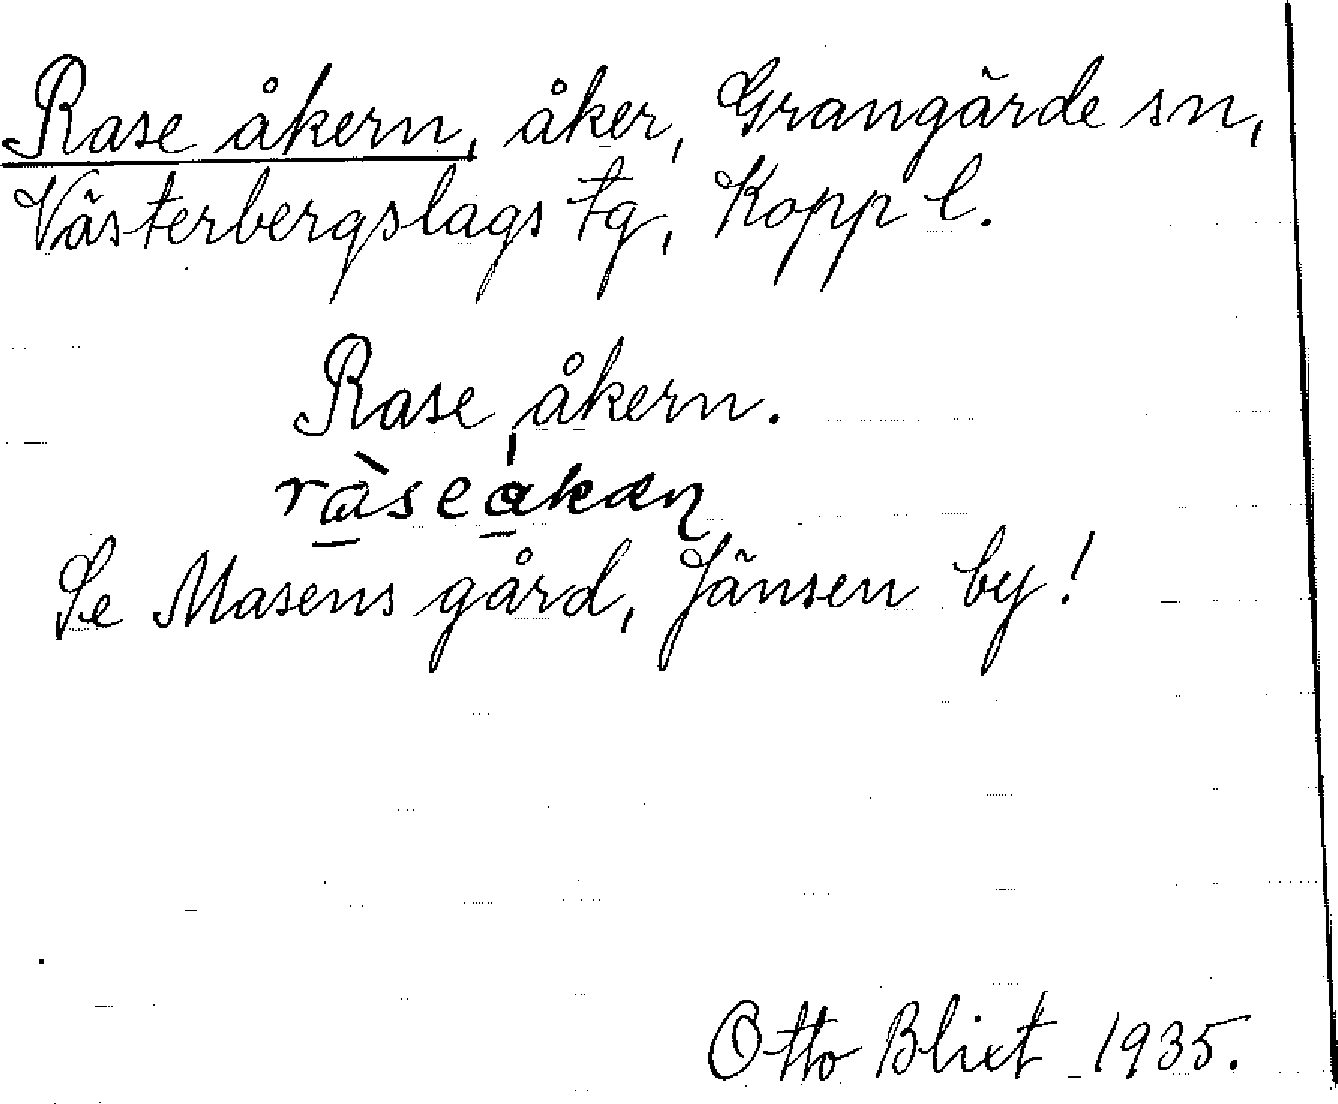 Rase åkern, åker, Grangärde sn,
Västerbergslags tg, Kopp l.
Rase åkern.
ràseåkæɳ
Se Masens gård, Jänsen by!
Otto Blixt 1935.